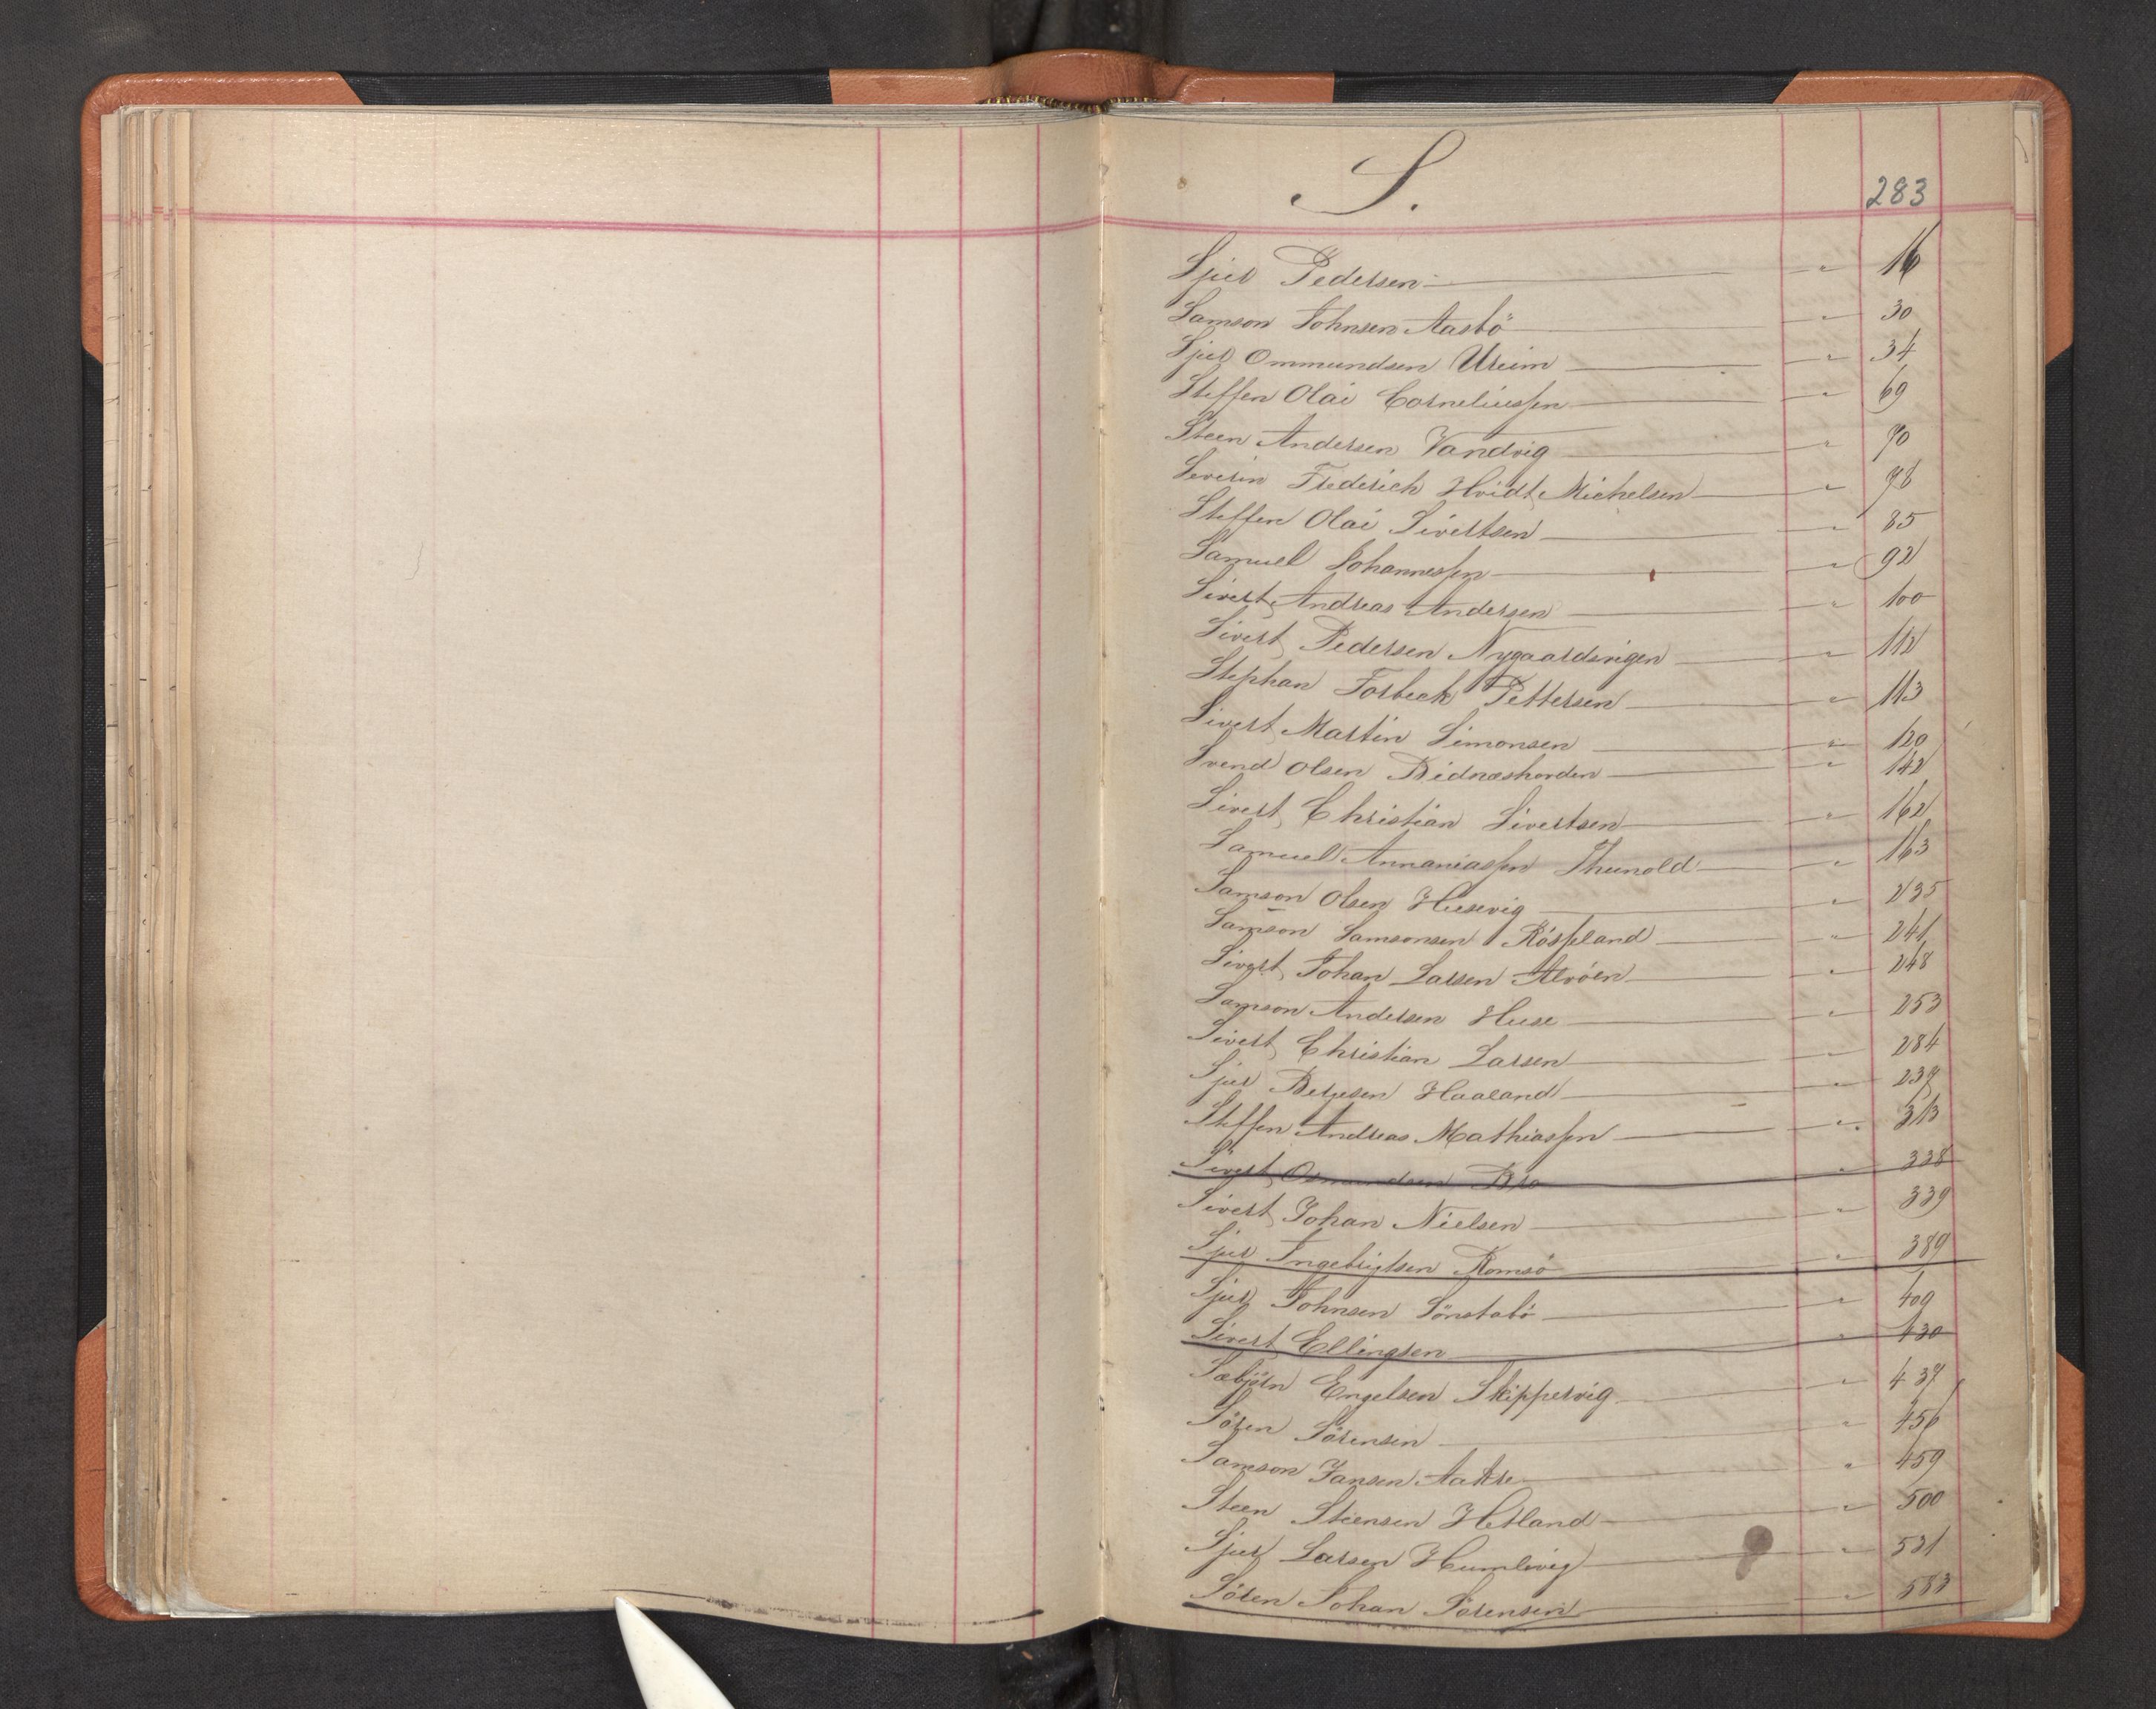 S.
283
Sjur Pedersen — " — 16
Samson Johnsen Aasbö — " — 30
Sjur Ommundsen Ureim — " — 34
Steffen Olai Corneliussen — " — 69
Steen Andersen Vandvig — " — 70
Severin Frederich Hvidt Michelsen — " — 78
Steffen Olai Sivertsen — " — 85
Samuel Johannessen — " — 92
Sivert Andreas Andersen — " — 100
Sivert Pedersen Nygaardsvigen — " — 112
Stephan Forbech Pettersen — " — 113
Sivert Martin Simonsen — " — 120
Svend Olsen Bidnæshorden — " — 142
Sivert Christian Sivertsen — " — 162
Samuel Annaniassen Thunold — " — 163
Samson Olsen Husevig — " — 235
Samson Samsonsen Rössland — " — 241
Sivert Johan Larsen Alvöen — " — 248
Samson Andersen Huse — " — 253
Sivert Christian Larsen — " — 284
Sjur Bergesen Haaland — " — 237
Steffen Andreas Mathiassen — " — 313
Sivert Osmundsen Bro — " — 338
Sivert Johan Nielsen — " — 339
Sjur Ingebrigtsen Romsö — " — 389
Sjur Johnsen Sönstabö — " — 409
Sivert Ellingsen — " — 430
Sæbjörn Engelsen Skippervig — " — 437
Sören Sörensen — " — 456
Samson Jansen Aakre — " — 459
Steen Steensen Hetland — " — 500
Sjur Larsen Humlevig — " — 521
Sören Johan Sörensen — " — 583